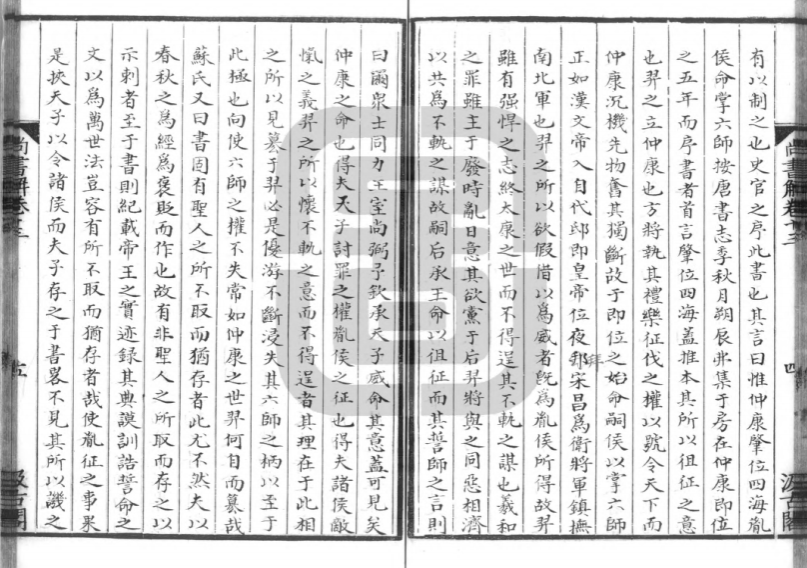 有以制之也史官之序此書也其言曰惟仲康肇位四海胤
侯命掌六師按唐書志季秋月朔辰弗集于房在仲康即位
之五年而序書者首言肇位四海蓋推本其所以徂征之意
也羿之立仲康也方將執其禮樂征伐之權以號令天下而
仲康沉機先物奮其獨斷故于即位之始命嗣侯以掌六師
正如漢文帝入自代邸即皇帝位夜拜宋昌為衛將軍鎮撫
南北軍也羿之所以欲假借以為威者旣為胤侯所得故羿
雖有强悍之志終太康之世而不得逞其不軌之謀也羲和
之罪雖主于廢時亂日意其欲黨于后羿將與之同惡相濟
以共為不軌之謀故嗣后承王命以徂征而其誓師之言則
曰爾衆士同力王室尚弼予欽承天子威命其意蓋可見矣
仲康之命也得夫天子討罪之權胤侯之征也得夫諸侯敵
愾之義羿之所以懷不軌之意而不得逞者其理在于此相
之所以見簒于羿必是優游不斷浸失其六師之柄以至于
此極也向使六師之權不失常如仲康之世羿何自而簒哉
蘇氏又曰書固有聖人之所不取而猶存者此尤不然夫以
春秋之為經為褒貶而作也故有非聖人之所取而存之以
示刺者至于書則紀載帝王之實迹録其典謨訓誥誓命之
文以為萬世法豈容有所不取而猶存者哉使胤征之事果
是挾天子以令諸侯而夫子存之于書畧不見其所以譏之
尚書解卷十三
四
汲古閣
尚書解卷十三
五
汲古閣